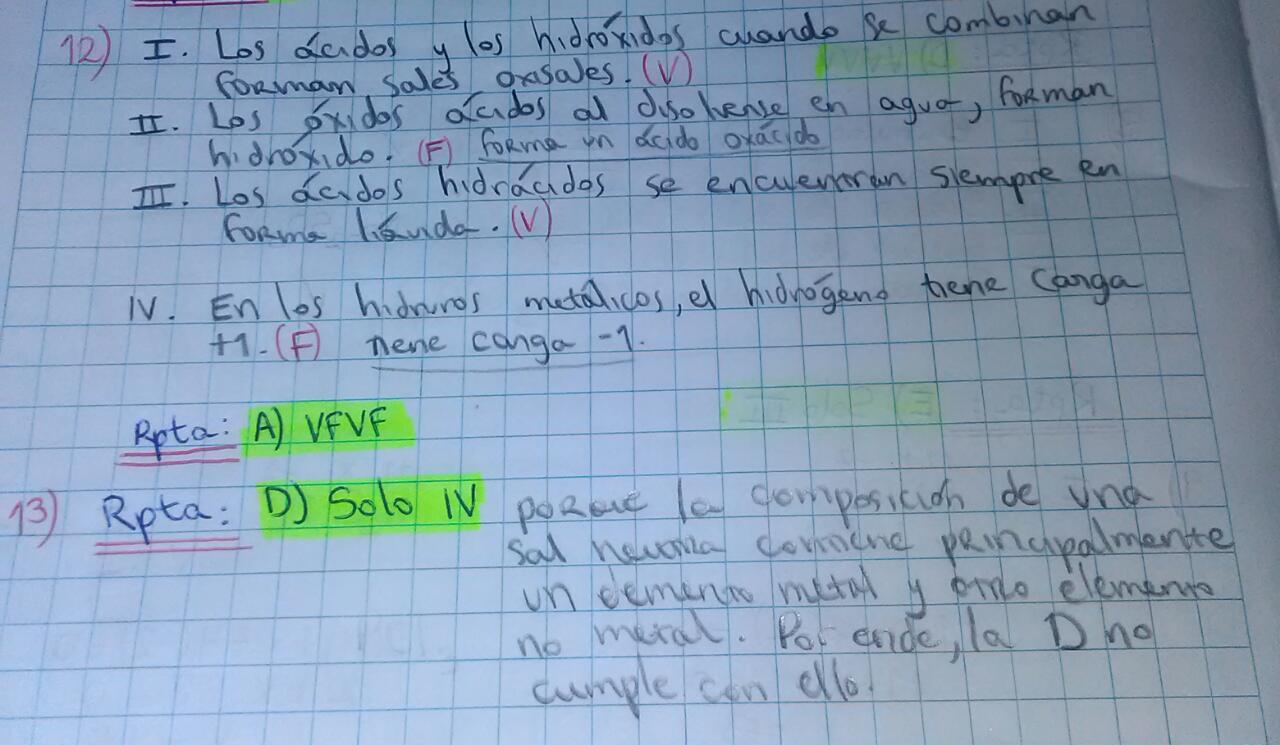 12) I. Los ácidos y los hidróxidos cuando se combinan
forman sales oxasales. (V)
II. Los óxidos ácidos al disolverse en agua, forman
hidróxido. (F) forma un ácido oxácido
III. Los ácidos hidrácidos se encuentran siempre en
forma líquida. (V)
IV. En los hidruros metálicos, el hidrógeno tiene carga
+1. (F) tiene carga -1.
Rpta: A) VFVF
13) Rpta: D) Solo IV porque la composición de una
sal neutra contiene principalmente
un elemento metal y otro elemento
no metal. Por ende, la D no
cumple con ello.